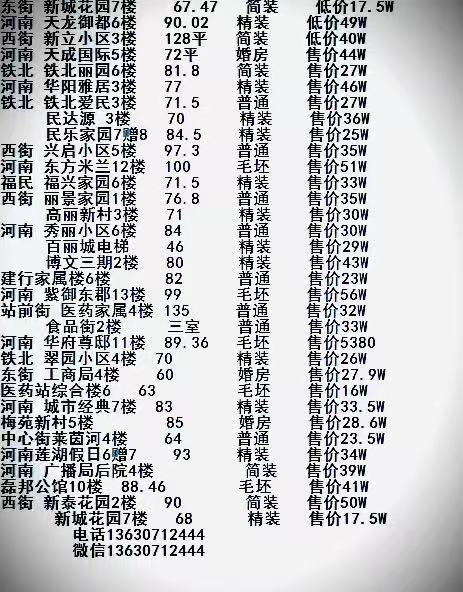 东街 新城花园7楼 67.47 简装 低价17.5W
河南 天龙御都6楼 90.02 精装 低价49W
西街 新立小区3楼 128平 简装 低价40W
河南 天成国际5楼 72平 婚房 售价44W
铁北 铁北丽园6楼 81.8 简装 售价27W
河南 华阳雅居3楼 77 精装 售价46W
铁北 铁北爱民3楼 71.5 普通 售价27W
民达源 3楼 70 精装 售价36W
民乐家园7赠8 84.5 精装 售价25W
西街 兴启小区5楼 97.3 普通 售价35W
河南 东方米兰12楼 100 毛坯 售价51W
福民 福兴家园6楼 71.5 精装 售价33W
西街 丽景家园1楼 76.8 普通 售价35W
高丽新村3楼 71 精装 售价30W
河南 秀丽小区6楼 84 普通 售价30W
百丽城电梯 46 精装 售价29W
博文三期2楼 80 精装 售价43W
建行家属楼6楼 82 普通 售价23W
河南 紫御东郡13楼 99 毛坯 售价56W
站前街 医药家属4楼 135 普通 售价32W
食品街2楼 三室 普通 售价33W
河南 华府尊邸11楼 89.36 毛坯 售价5380
铁北 翠园小区4楼 70 精装 售价26W
东街 工商局4楼 60 婚房 售价27.9W
医药站综合楼6 63 毛坯 售价16W
河南 城市经典7楼 83 精装 售价33.5W
梅苑新村5楼 85 婚房 售价28.6W
中心街莱茵河4楼 64 普通 售价23.5W
河南莲湖假日6赠7 93 精装 售价34W
河南 广播局后院4楼 简装 售价39W
磊邦公馆10楼 88.46 毛坯 售价41W
西街 新泰花园2楼 90 简装 售价50W
新城花园7楼 68 精装 售价17.5W
电话13630712444
微信13630712444